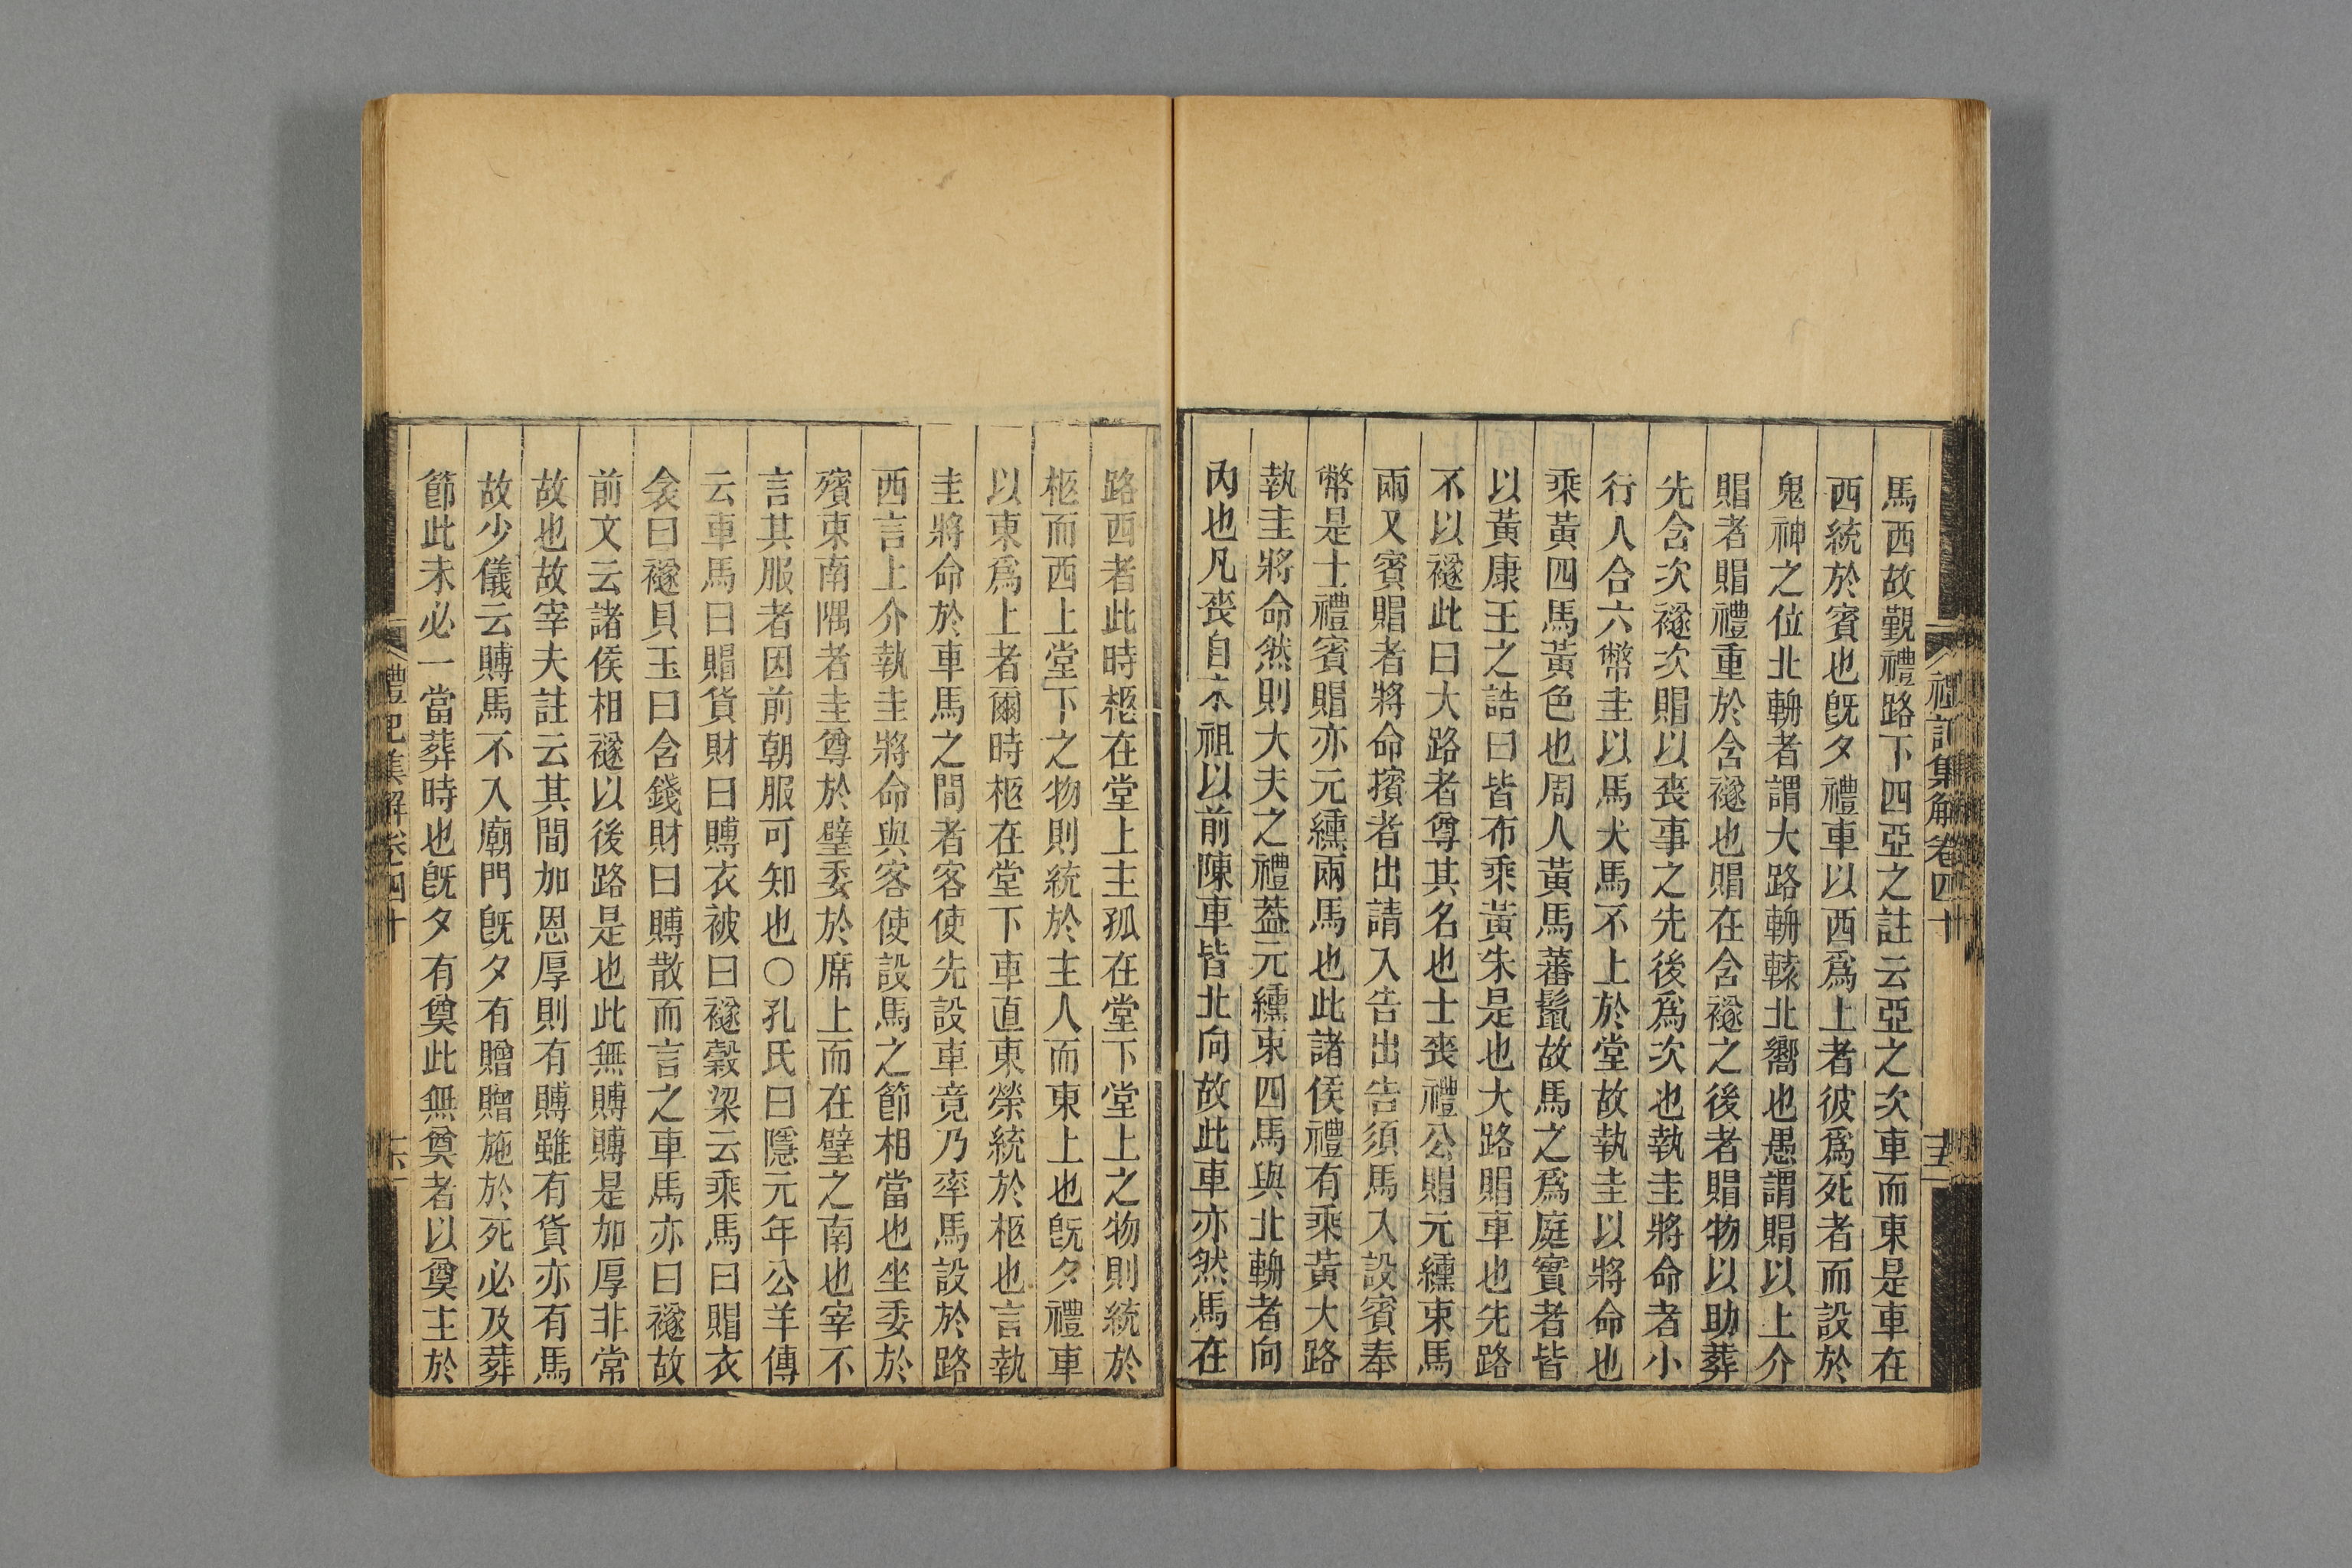 禮記集解卷四十
馬西故覲禮路下四亞之註云亞之次車而東是車在
西統於賓也旣夕禮車以西爲上者彼爲死者而設於
鬼神之位北輈者謂大路輈轅北嚮也愚謂賵以上介
賵者賵禮重於含襚也賵在含襚之後者賵物以助葬
先含次襚次賵以喪事之先後爲次也執圭將命者小
行人合六幣圭以馬犬馬不上於堂故執圭以將命也
乘黃四馬黃色也周人黃馬蕃鬣故馬之爲庭實者皆
以黃康王之誥曰皆布乘黃朱是也大路賵車也先路
不以襚此曰大路者尊其名也士喪禮公賵元纁束馬
兩又賓賵者將命擯者出請入告出告須馬入設賓奉
幣是士禮賓賵亦元纁兩馬也此諸侯禮有乘黃大路
執圭將命然則大夫之禮蓋元纁束四馬與北輈者向
內也凡喪自未祖以前陳車皆北向故此車亦然馬在
路西者此時柩在堂上主孤在堂下堂上之物則統於
柩而西上堂下之物則統於主人而東上也旣夕禮車
以東爲上者爾時柩在堂下車直東榮統於柩也言執
圭將命於車馬之間者客使先設車竟乃率馬設於路
西言上介執圭將命與客使設馬之節相當也坐委於
殯東南隅者圭尊於璧委於席上而在璧之南也宰不
言其服者因前朝服可知也○孔氏曰隱元年公羊傳
云車馬曰賵貨財曰賻衣被曰襚穀梁云乘馬曰賵衣
衾曰襚貝玉曰含錢財曰賻散而言之車馬亦曰襚故
前文云諸侯相襚以後路是也此無賻賻是加厚非常
故也故宰夫註云其間加恩厚則有賻雖有貨亦有馬
故少儀云賻馬不入廟門旣夕有贈贈施於死必及葬
節此未必一當葬時也旣夕有奠此無奠者以奠主於
禮記集解卷四十